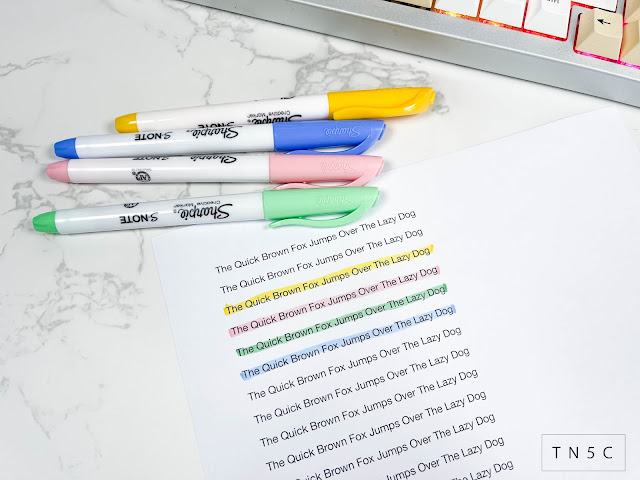 Sharpie
Creative Marker
S·NOTE
Sharpie
S·NOTE
Sharpie
Sharpie
Sharpie
Creative Marker
S·NOTE
The Quick Brown Fox Jumps Over The Lazy Dog
The Quick Brown Fox Jumps Over The Lazy Dog
The Quick Brown Fox Jumps Over The Lazy Dog
The Quick Brown Fox Jumps Over The Lazy Dog
The Quick Brown Fox Jumps Over The Lazy Dog
The Quick Brown Fox Jumps Over The Lazy Dog
The Quick Brown Fox Jumps Over The Lazy Dog
The Quick Brown Fox Jumps Over The Lazy Dog
The Quick Brown Fox Jumps Over The Lazy Dog
The Quick Brown Fox Jumps Over The Lazy Dog
Brown Fox Jumps Over The Lazy Dog
Jumps Over The Lazy Dog
TN5C